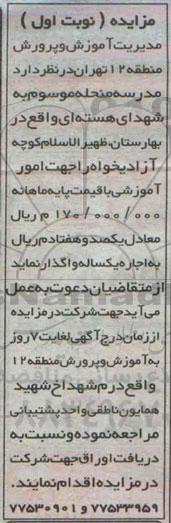 مزایده ( نوبت اول )
مدیریت آموزش و پرورش
منطقه ۱۲ تهران در نظر دارد
مدرسه منحله موسوم به
شهدای هسته ای واقع در
بهارستان، ظهیرالاسلام کوچه
آزادیخواه را جهت امور
آموزشی با قیمت پایه ماهانه
۱۷۰/۰۰۰/۰۰۰ م ریال
معادل یکصد و هفتاد م ریال
به اجاره یکساله واگذار نماید
از متقاضیان دعوت به عمل
می آید جهت شرکت در مزایده
از زمان درج آگهی لغایت ۷ روز
به آموزش و پرورش منطقه ۱۲
واقع در م شهدا خ شهید
همایون ناطقی واحد پشتیبانی
مراجعه نموده و نسبت به
دریافت اوراق جهت شرکت
در مزایده اقدام نمایند.
۷۷۵۳۳۹۵۹ و ۷۷۵۳۰۹۰۱